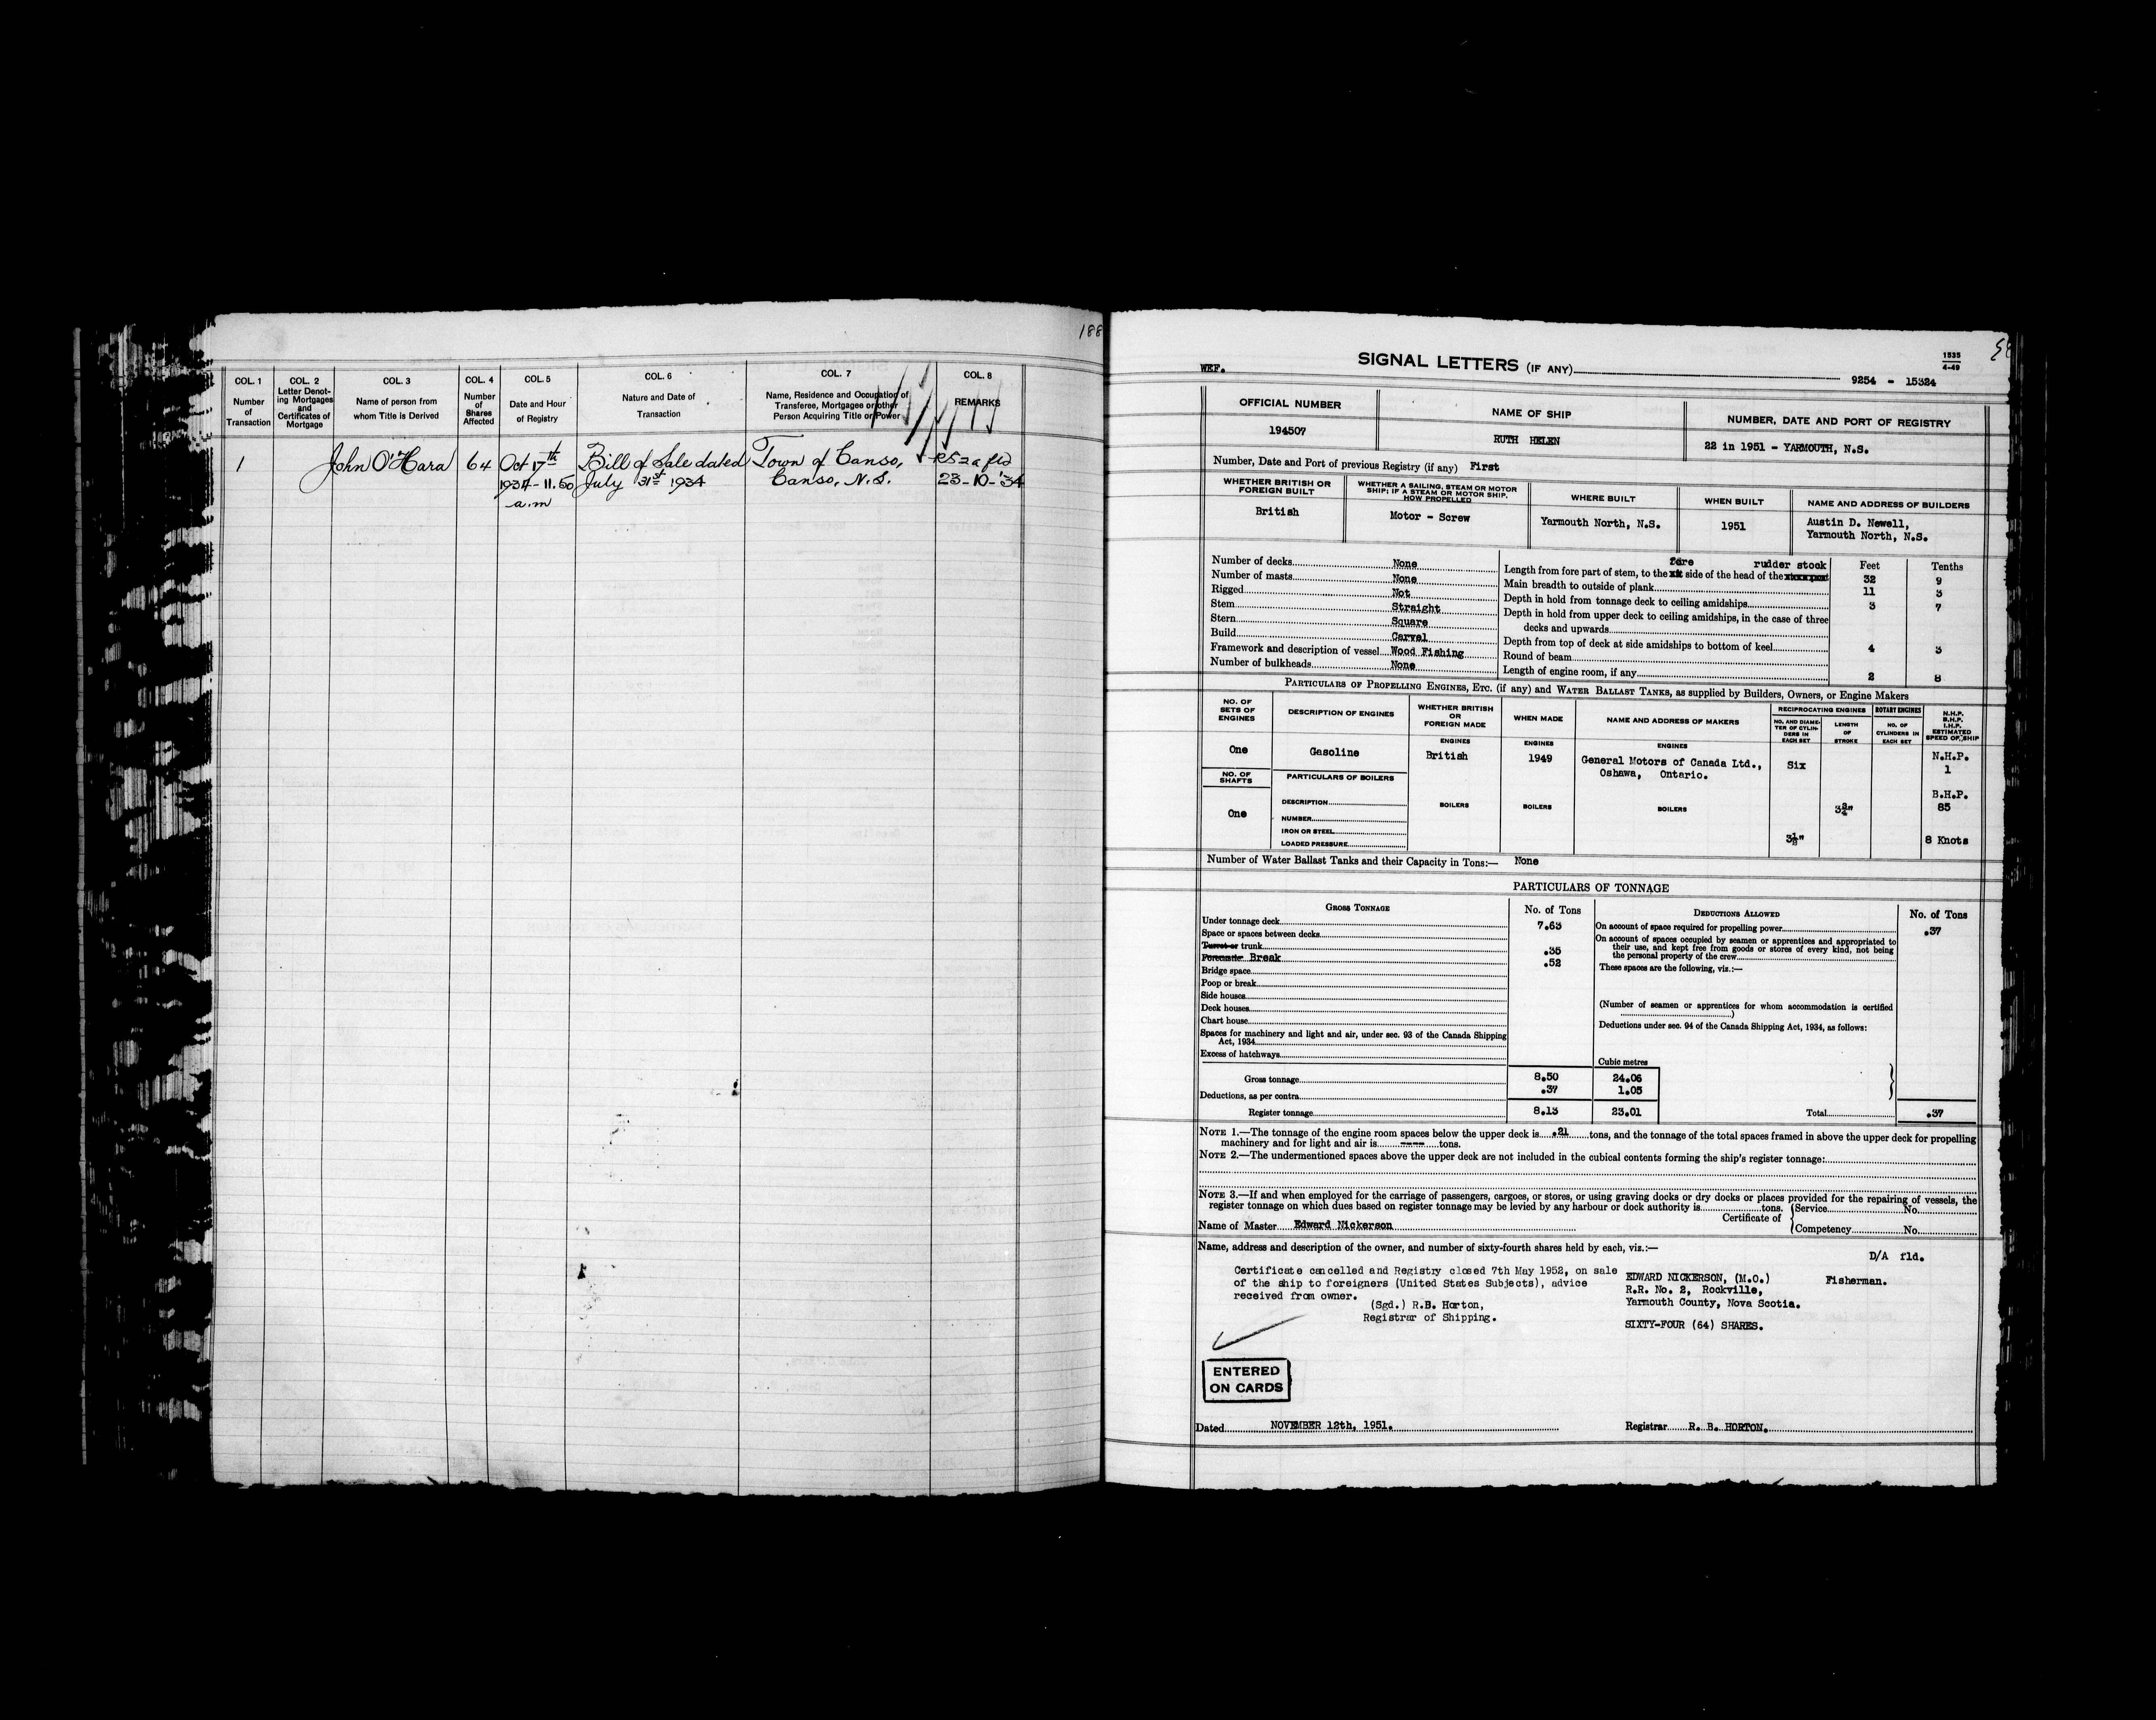 188
COL. 1 Number of Transaction
COL. 2 Letter Denoting Mortgages and Certificates of Mortgage
COL. 3 Name of person from whom Title is Derived
COL. 4 Number of Shares Affected
COL. 5 Date and Hour of Registry
COL. 6 Nature and Date of Transaction
COL. 7 Name, Residence and Occupation of Transferee, Mortgagee or other Person Acquiring Title or Power
COL. 8 REMARKS
1 John O'Hara 64 Oct 17th Bill of Sale dated Town of Canso, R52a fld
1934-11.50 July 31st 1934 Canso, N.S. 23-10-'34
a.m
1535
4-49
WEF. SIGNAL LETTERS (IF ANY) 9254 - 15324
OFFICIAL NUMBER NAME OF SHIP NUMBER, DATE AND PORT OF REGISTRY
194507 RUTH HELEN 22 in 1951 - YARMOUTH, N.S.
Number, Date and Port of previous Registry (if any) First
WHETHER BRITISH OR FOREIGN BUILT
WHETHER A SAILING, STEAM OR MOTOR SHIP; IF A STEAM OR MOTOR SHIP, HOW PROPELLED
WHERE BUILT WHEN BUILT NAME AND ADDRESS OF BUILDERS
British Motor - Screw Yarmouth North, N.S. 1951 Austin D. Newell,
Yarmouth North, N.S.
Number of decks None
Number of masts None
Rigged Not
Stem Straight
Stern Square
Build Carvel
Framework and description of vessel Wood Fishing
Number of bulkheads None
Feet Tenths
fore rudder stock
Length from fore part of stem, to the side of the head of the 32 9
Main breadth to outside of plank 11 3
Depth in hold from tonnage deck to ceiling amidships 3 7
Depth in hold from upper deck to ceiling amidships, in the case of three
decks and upwards
Depth from top of deck at side amidships to bottom of keel 4 3
Round of beam
Length of engine room, if any 2 8
PARTICULARS OF PROPELLING ENGINES, ETC. (if any) and WATER BALLAST TANKS, as supplied by Builders, Owners, or Engine Makers
NO. OF SETS OF ENGINES
DESCRIPTION OF ENGINES
WHETHER BRITISH OR FOREIGN MADE
WHEN MADE
NAME AND ADDRESS OF MAKERS
RECIPROCATING ENGINES
NO. AND DIAMETER OF CYLINDERS IN EACH SET
LENGTH OF STROKE
ROTARY ENGINES
NO. OF CYLINDERS IN EACH SET
N.H.P. B.H.P. I.H.P. ESTIMATED SPEED OF SHIP
ENGINES ENGINES ENGINES
One Gasoline British 1949 General Motors of Canada Ltd., Six N.H.P.
Oshawa, Ontario. 1
NO. OF SHAFTS PARTICULARS OF BOILERS
B.H.P.
One DESCRIPTION BOILERS BOILERS BOILERS 3¾" 85
NUMBER
IRON OR STEEL
LOADED PRESSURE 8 Knots
Number of Water Ballast Tanks and their Capacity in Tons:— None
PARTICULARS OF TONNAGE
GROSS TONNAGE No. of Tons DEDUCTIONS ALLOWED No. of Tons
Under tonnage deck 7.63
Space or spaces between decks
Turret or trunk .35
Forecastle Break .52
Bridge space
Poop or break
Side houses
Deck houses
Chart house
Spaces for machinery and light and air, under sec. 93 of the Canada Shipping
Act, 1934
Excess of hatchways
On account of space required for propelling power .37
On account of spaces occupied by seamen or apprentices and appropriated to
their use, and kept free from goods or stores of every kind, not being
the personal property of the crew
These spaces are the following, viz.:—
(Number of seamen or apprentices for whom accommodation is certified
)
Deductions under sec. 94 of the Canada Shipping Act, 1934, as follows:
Cubic metres
Gross tonnage 8.50 24.06
Deductions, as per contra .37 1.05
Register tonnage 8.13 23.01 Total .37
NOTE 1.—The tonnage of the engine room spaces below the upper deck is .21 tons, and the tonnage of the total spaces framed in above the upper deck for propelling
machinery and for light and air is ---- tons.
NOTE 2.—The undermentioned spaces above the upper deck are not included in the cubical contents forming the ship's register tonnage:
NOTE 3.—If and when employed for the carriage of passengers, cargoes, or stores, or using graving docks or dry docks or places provided for the repairing of vessels, the
register tonnage on which dues based on register tonnage may be levied by any harbour or dock authority is tons.
Certificate of Service No.
Competency No.
Name of Master Edward Nickerson
Name, address and description of the owner, and number of sixty-fourth shares held by each, viz.:—
D/A fld.
Certificate cancelled and Registry closed 7th May 1952, on sale
of the ship to foreigners (United States Subjects), advice
received from owner.
(Sgd.) R.B. Horton,
Registrar of Shipping.
EDWARD NICKERSON, (M.O.) Fisherman.
R.R. No. 2, Rockville,
Yarmouth County, Nova Scotia.
SIXTY-FOUR (64) SHARES.
ENTERED
ON CARDS
Dated NOVEMBER 12th, 1951. Registrar R. B. HORTON.